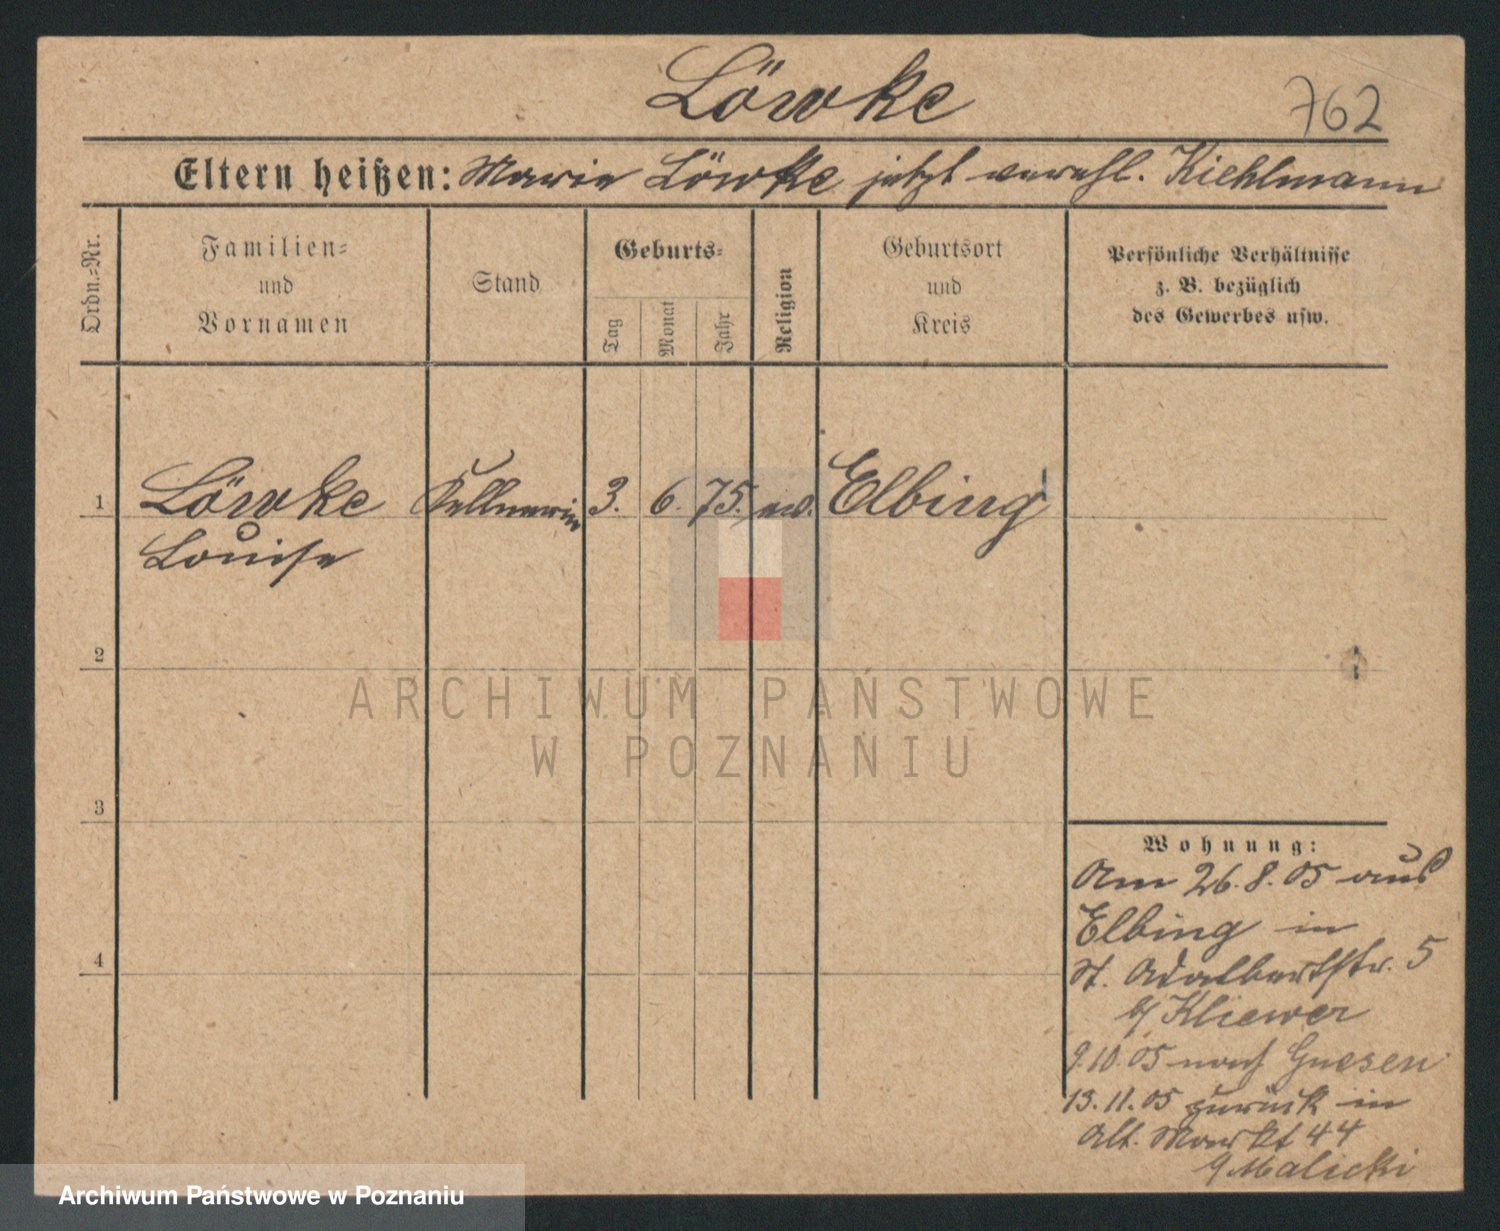 Löwke
762
Eltern heißen: Marie Löwke jetzt verehl. Kiehlmann
Ordn.=Nr.
Familien=
und
Vornamen
Stand
Geburts=
Tag
Monat
Jahr
Religion
Geburtsort
und
Kreis
Persönliche Verhältnisse
z. B. bezüglich
des Gewerbes usw.
1
Löwke
Louise
Kellnerin
3.
6.
75.
ev.
Elbing
2
3
4
Wohnung:
Am 26.8.05 aus
Elbing in
St. Adalbertstr. 5
b/ Kliewer
9.10.05 nach Gnesen
13.11.05 zurück in
Alt. Markt 44
Malicki
ARCHIWUM PAŃSTWOWE
W POZNANIU
Archiwum Państwowe w Poznaniu